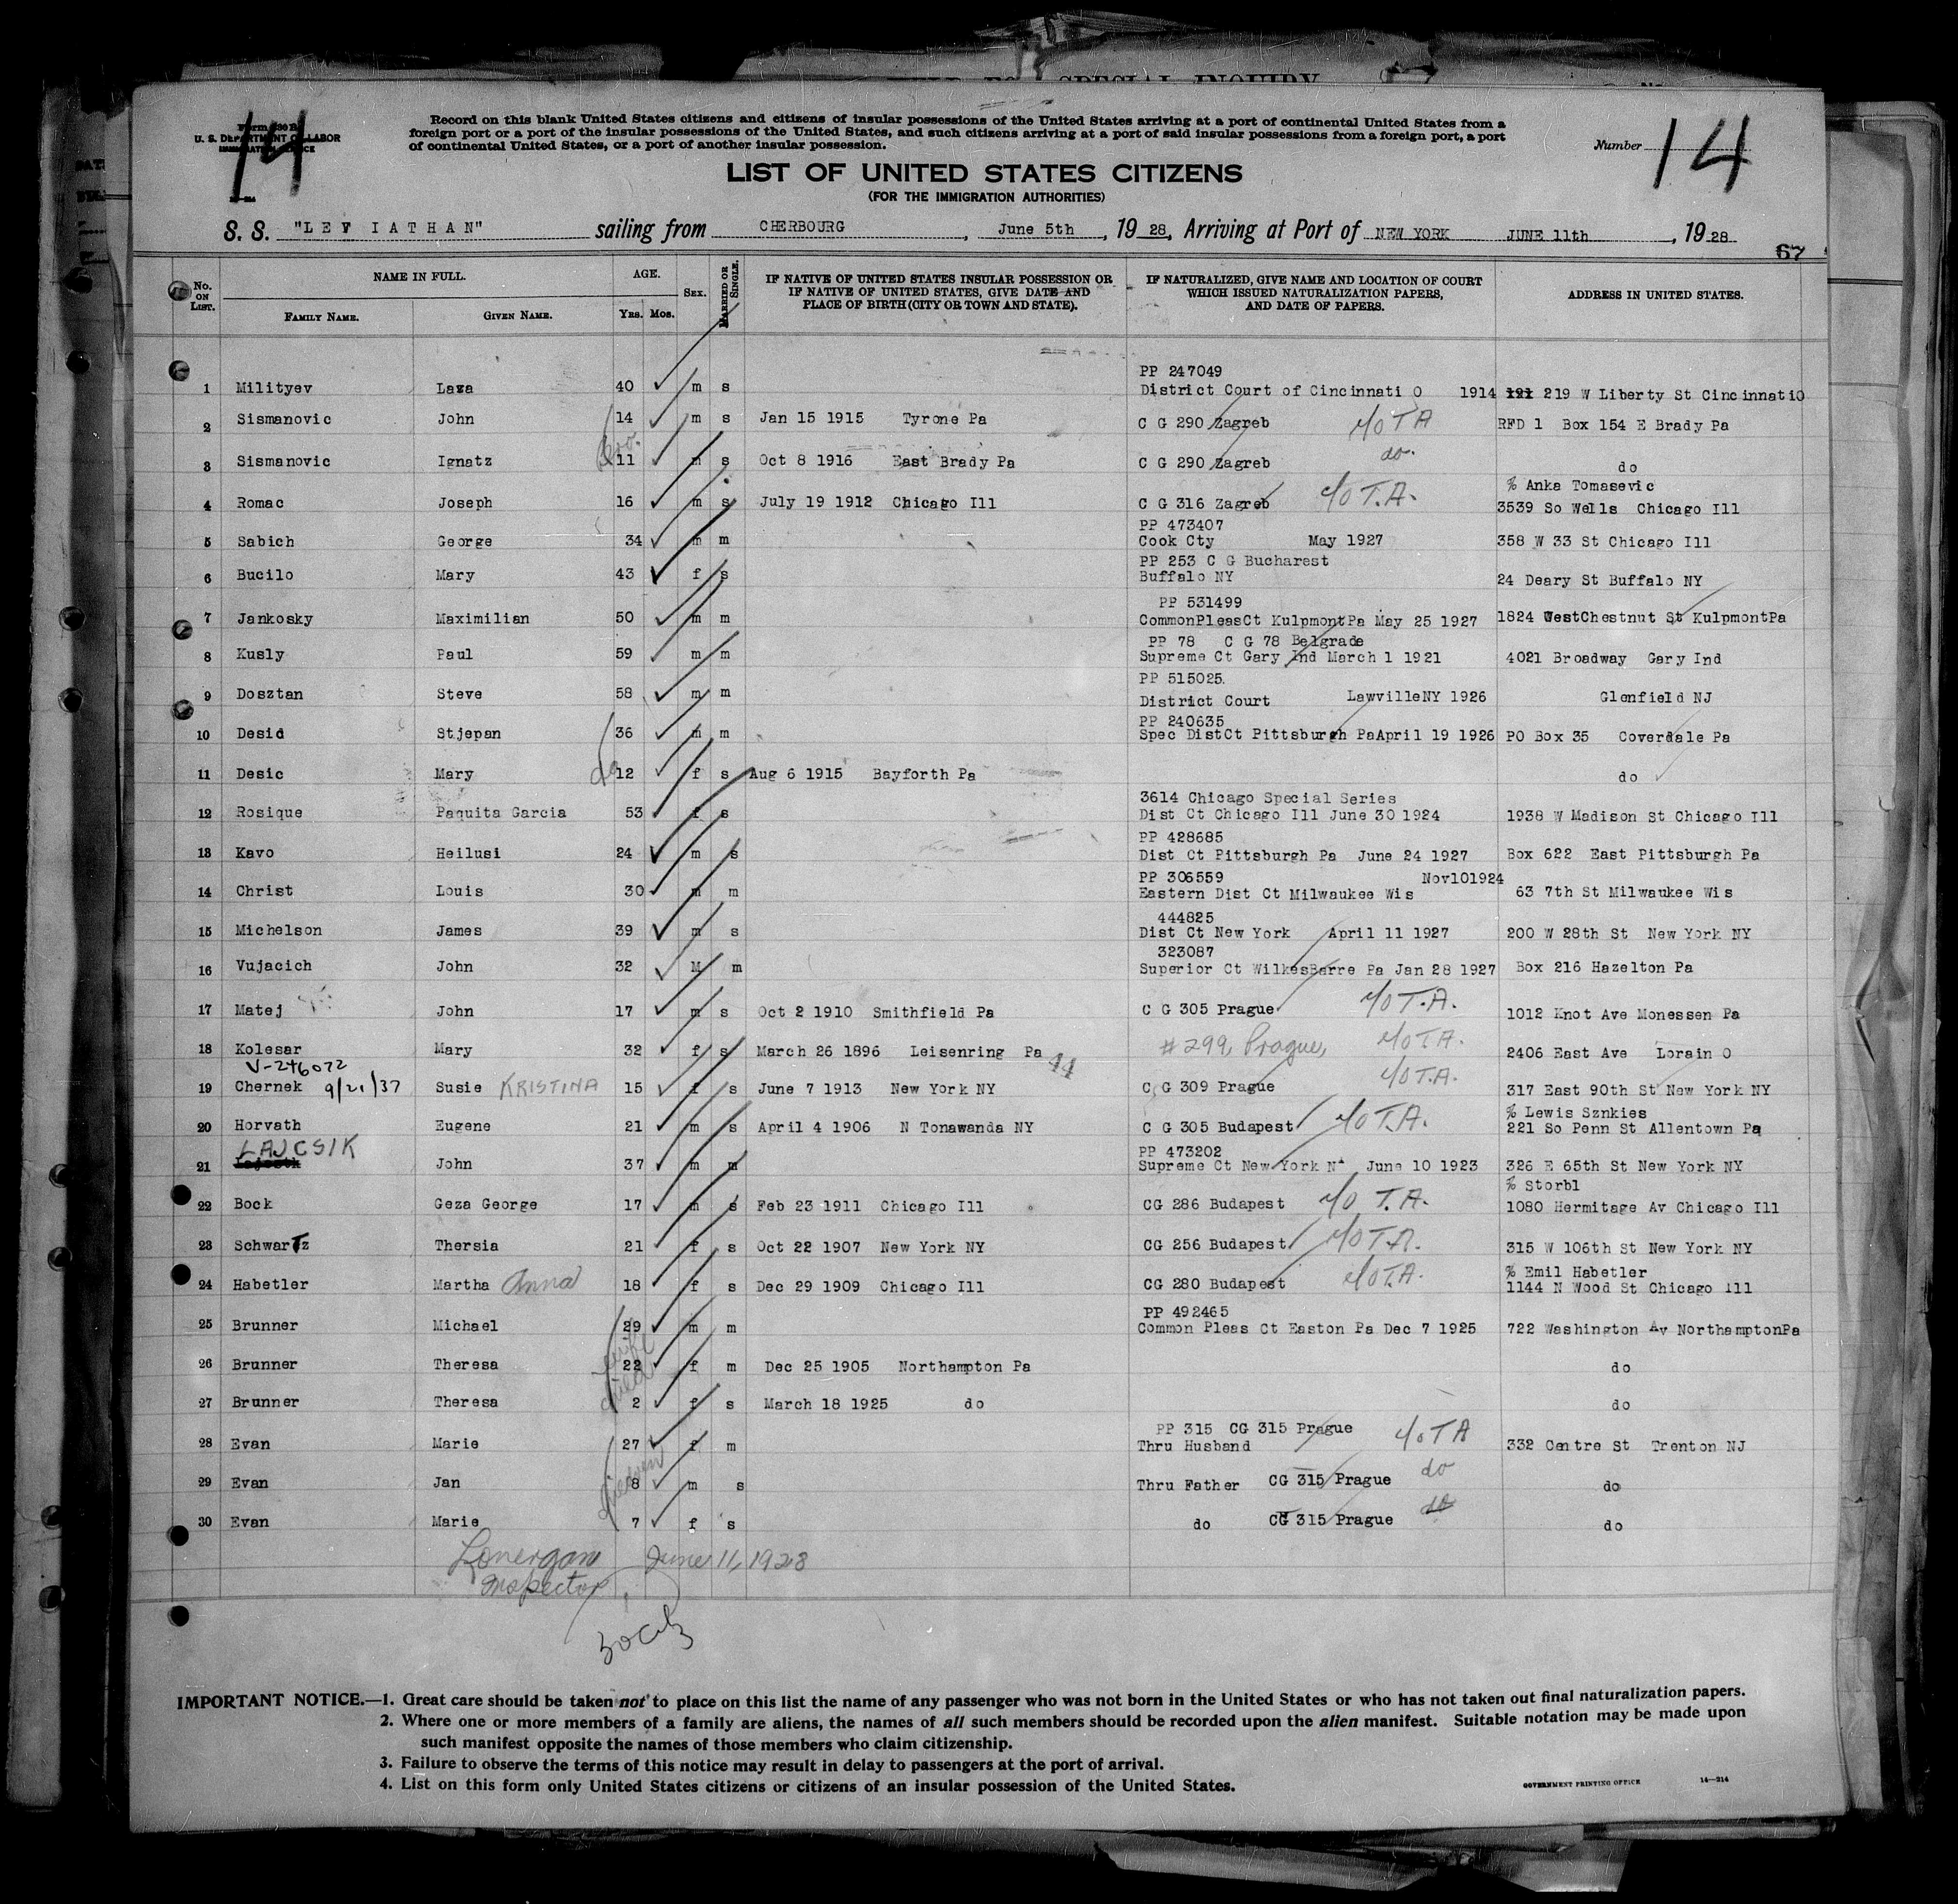 Record on this blank United States citizens and citizens of insular possessions of the United States arriving at a port of continental United States from a
foreign port or a port of the insular possessions of the United States, and such citizens arriving at a port of said insular possessions from a foreign port, a port
of continental United States, or a port of another insular possession.
U. S. DEPARTMENT OF LABOR
14
Number 14
LIST OF UNITED STATES CITIZENS
(FOR THE IMMIGRATION AUTHORITIES)
S. S. "LEV IATHAN" sailing from CHERBOURG, June 5th, 1928, Arriving at Port of NEW YORK JUNE 11th, 1928
67
No. ON LIST. NAME IN FULL. AGE. SEX. MARRIED OR SINGLE. IF NATIVE OF UNITED STATES INSULAR POSSESSION OR IF NATIVE OF UNITED STATES, GIVE DATE AND PLACE OF BIRTH (CITY OR TOWN AND STATE). IF NATURALIZED, GIVE NAME AND LOCATION OF COURT WHICH ISSUED NATURALIZATION PAPERS, AND DATE OF PAPERS. ADDRESS IN UNITED STATES.
FAMILY NAME. GIVEN NAME. YRS. MOS.
PP 247049
1 Milityev Laza 40 m s District Court of Cincinnati O 1914 191 219 W Liberty St CincinnatiO
2 Sismanovic John 14 m s Jan 15 1915 Tyrone Pa C G 290 Zagreb T A RFD 1 Box 154 E Brady Pa
3 Sismanovic Ignatz 11 m s Oct 8 1916 East Brady Pa C G 290 Zagreb do. do
% Anka Tomasevic
4 Romac Joseph 16 m s July 19 1912 Chicago Ill C G 316 Zagreb T.A. 3539 So Wells Chicago Ill
PP 473407
5 Sabich George 34 m m Cook Cty May 1927 358 W 33 St Chicago Ill
PP 253 C G Bucharest
6 Bucilo Mary 43 f s Buffalo NY 24 Deary St Buffalo NY
PP 531499
7 Jankosky Maximilian 50 m m CommonPleasCt KulpmontPa May 25 1927 1824 WestChestnut St KulpmontPa
PP 78 C G 78 Belgrade
8 Kusly Paul 59 m m Supreme Ct Gary Ind March 1 1921 4021 Broadway Gary Ind
PP 515025
9 Dosztan Steve 58 m m District Court LawvilleNY 1926 Glenfield NJ
PP 240635
10 Desid Stjepan 36 m m Spec DistCt Pittsburgh PaApril 19 1926 PO Box 35 Coverdale Pa
11 Desic Mary 12 f s Aug 6 1915 Bayforth Pa do
3614 Chicago Special Series
12 Rosique Paquita Garcia 53 f s Dist Ct Chicago Ill June 30 1924 1938 W Madison St Chicago Ill
PP 428685
13 Kavo Heilusi 24 m s Dist Ct Pittsburgh Pa June 24 1927 Box 622 East Pittsburgh Pa
PP 306559 Nov101924
14 Christ Louis 30 m m Eastern Dist Ct Milwaukee Wis 63 7th St Milwaukee Wis
444825
15 Michelson James 39 m s Dist Ct New York April 11 1927 200 W 28th St New York NY
323087
16 Vujacich John 32 M m Superior Ct WilkesBarre Pa Jan 28 1927 Box 216 Hazelton Pa
17 Matej John 17 m s Oct 2 1910 Smithfield Pa C G 305 Prague T.A. 1012 Knot Ave Monessen Pa
18 Kolesar Mary 32 f s March 26 1896 Leisenring Pa #299, Prague, T.A. 2406 East Ave Lorain O
V-246072 44
19 Chernek 9/21/37 Susie KRISTINA 15 f s June 7 1913 New York NY C G 309 Prague T.A. 317 East 90th St New York NY
% Lewis Sznkies
20 Horvath Eugene 21 m s April 4 1906 N Tonawanda NY C G 305 Budapest T.A. 221 So Penn St Allentown Pa
LAJCSIK PP 473202
21 John 37 m m Supreme Ct New York June 10 1923 326 E 65th St New York NY
% Storbl
22 Bock Geza George 17 m s Feb 23 1911 Chicago Ill CG 286 Budapest T.A. 1080 Hermitage Av Chicago Ill
23 SchwarTz Thersia 21 f s Oct 22 1907 New York NY CG 256 Budapest T.A. 315 W 106th St New York NY
% Emil Habetler
24 Habetler Martha Anna 18 f s Dec 29 1909 Chicago Ill CG 280 Budapest T.A. 1144 N Wood St Chicago Ill
PP 492465
25 Brunner Michael 29 m m Common Pleas Ct Easton Pa Dec 7 1925 722 Washington Av NorthamptonPa
26 Brunner Theresa wife 22 f m Dec 25 1905 Northampton Pa do
27 Brunner Theresa child 2 f s March 18 1925 do do
PP 315 CG 315 Prague
28 Evan Marie 27 f m Thru Husband T A 332 Centre St Trenton NJ
29 Evan Jan children 8 m s Thru Father CG 315 Prague do do
30 Evan Marie 7 f s do CG 315 Prague do do
Lonergan June 11, 1928
Inspector
IMPORTANT NOTICE.—1. Great care should be taken not to place on this list the name of any passenger who was not born in the United States or who has not taken out final naturalization papers.
2. Where one or more members of a family are aliens, the names of all such members should be recorded upon the alien manifest. Suitable notation may be made upon
such manifest opposite the names of those members who claim citizenship.
3. Failure to observe the terms of this notice may result in delay to passengers at the port of arrival.
4. List on this form only United States citizens or citizens of an insular possession of the United States.
GOVERNMENT PRINTING OFFICE 14—214